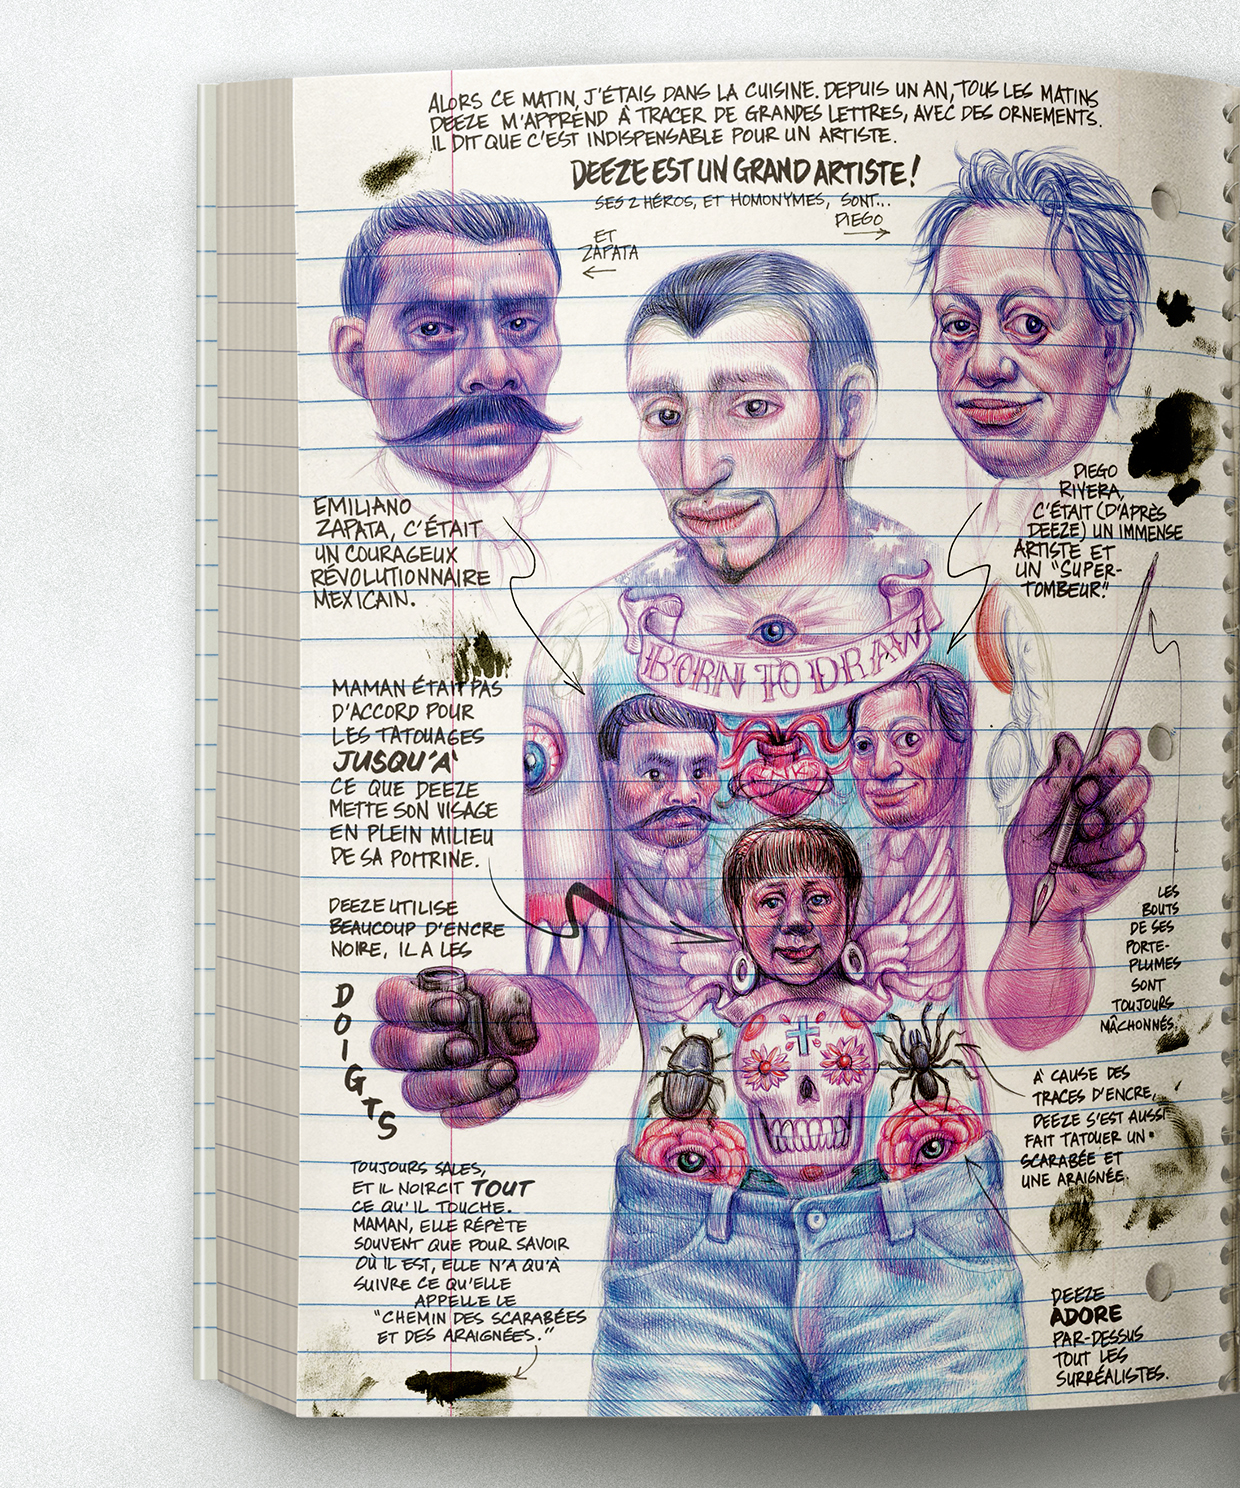 ALORS CE MATIN, J'ÉTAIS DANS LA CUISINE. DEPUIS UN AN, TOUS LES MATINS
DEEZE M'APPREND À TRACER DE GRANDES LETTRES, AVEC DES ORNEMENTS.
IL DIT QUE C'EST INDISPENSABLE POUR UN ARTISTE.
DEEZE EST UN GRAND ARTISTE!
SES 2 HÉROS, ET HOMONYMES, SONT...
DIEGO
ET
ZAPATA
EMILIANO
ZAPATA, C'ÉTAIT
UN COURAGEUX
RÉVOLUTIONNAIRE
MEXICAIN.
DIEGO
RIVERA,
C'ÉTAIT (D'APRÈS
DEEZE) UN IMMENSE
ARTISTE ET
UN "SUPER-
TOMBEUR."
BORN TO DRAW
MAMAN ÉTAIT PAS
D'ACCORD POUR
LES TATOUAGES
JUSQU'À
CE QUE DEEZE
METTE SON VISAGE
EN PLEIN MILIEU
DE SA POITRINE.
DEEZE UTILISE
BEAUCOUP D'ENCRE
NOIRE, IL A LES
DOIGTS
TOUJOURS SALES,
ET IL NOIRCIT TOUT
CE QU'IL TOUCHE.
MAMAN, ELLE RÉPÈTE
SOUVENT QUE POUR SAVOIR
OÙ IL EST, ELLE N'A QU'À
SUIVRE CE QU'ELLE
APPELLE LE
"CHEMIN DES SCARABÉES
ET DES ARAIGNÉES."
LES
BOUTS
DE SES
PORTE-
PLUMES
SONT
TOUJOURS
MÂCHONNÉS.
À CAUSE DES
TRACES D'ENCRE,
DEEZE S'EST AUSSI
FAIT TATOUER UN
SCARABÉE ET
UNE ARAIGNÉE.
DEEZE
ADORE
PAR-DESSUS
TOUT LES
SURRÉALISTES.